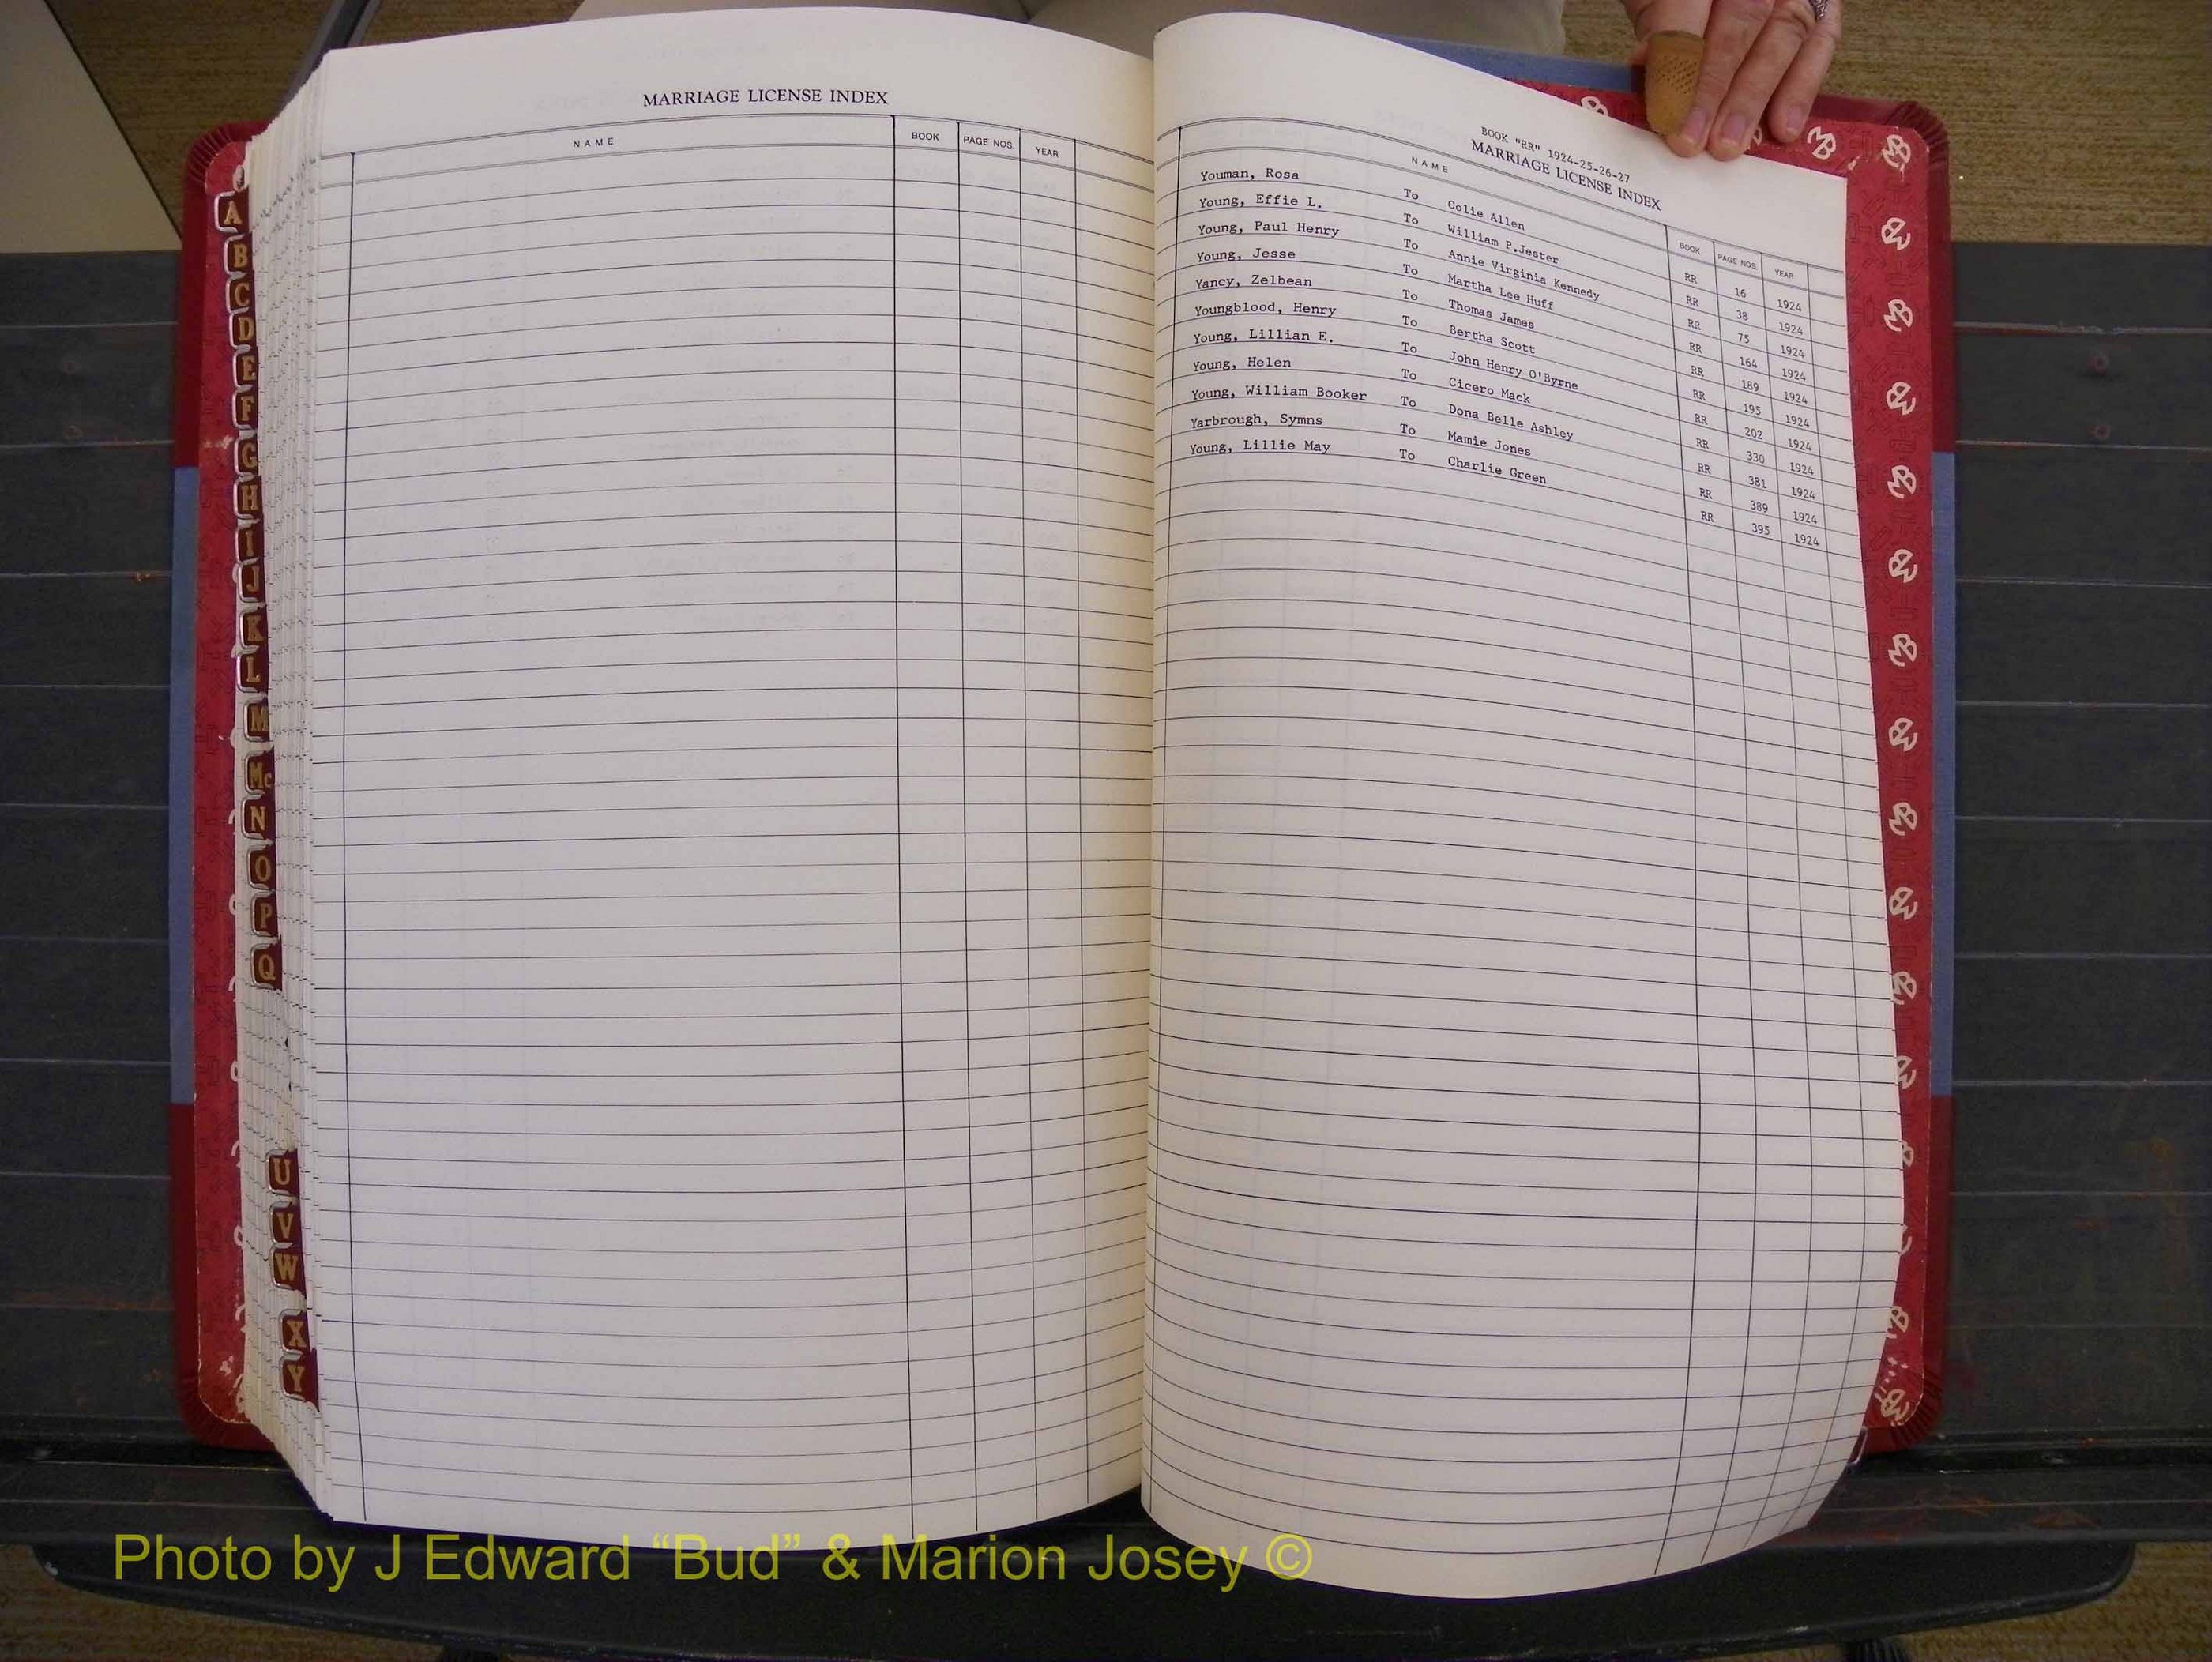 MARRIAGE LICENSE INDEX
NAME BOOK PAGE NOS. YEAR
BOOK "RR" 1924-25-26-27
MARRIAGE LICENSE INDEX
NAME BOOK PAGE NOS. YEAR
Youman, Rosa To Colie Allen RR 16 1924
Young, Effie L. To William P.Jester RR 38 1924
Young, Paul Henry To Annie Virginia Kennedy RR 75 1924
Young, Jesse To Martha Lee Huff RR 164 1924
Yancy, Zelbean To Thomas James RR 189 1924
Youngblood, Henry To Bertha Scott RR 195 1924
Young, Lillian E. To John Henry O'Byrne RR 202 1924
Young, Helen To Cicero Mack RR 330 1924
Young, William Booker To Dona Belle Ashley RR 381 1924
Yarbrough, Symns To Mamie Jones RR 389 1924
Young, Lillie May To Charlie Green RR 395 1924
A
B
C
D
E
F
G
H
I
J
K
L
M
Mc
N
O
P
Q
U
V
W
X
Y
Photo by J Edward “Bud” & Marion Josey ©